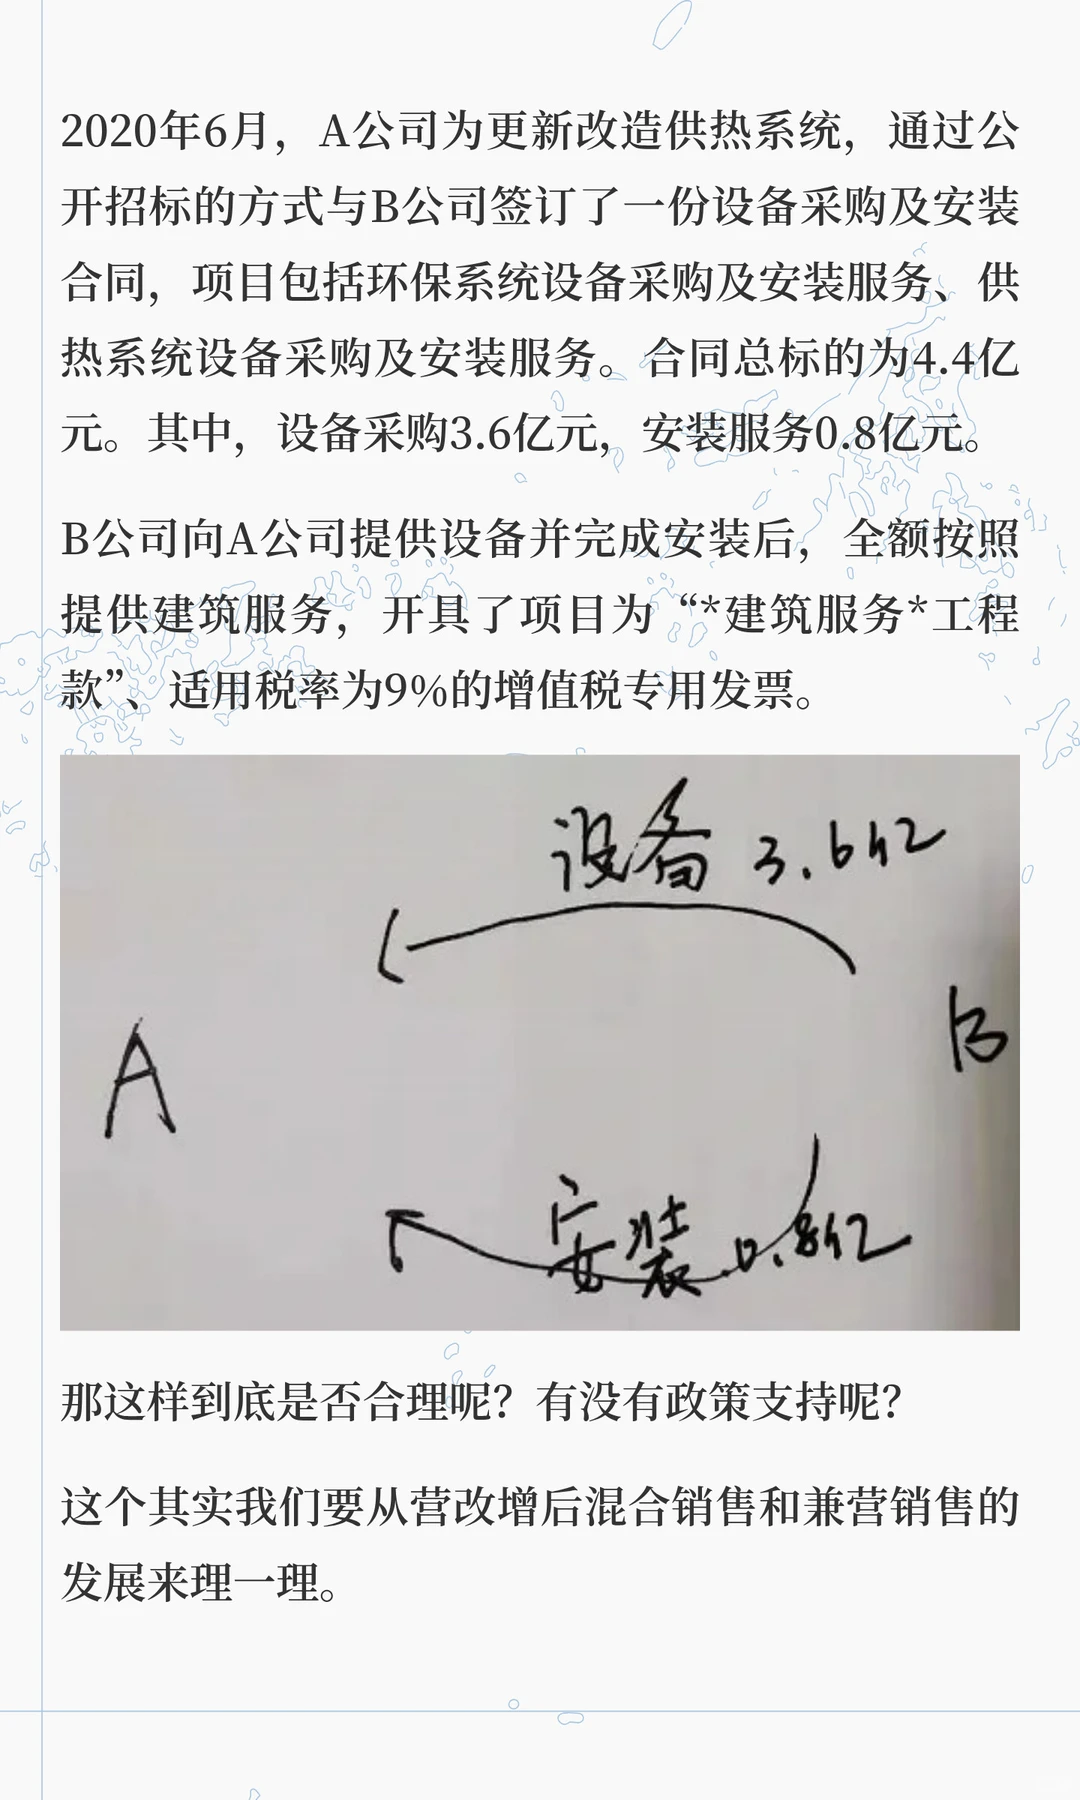 2020年6月，A公司为更新改造供热系统，通过公
开招标的方式与B公司签订了一份设备采购及安装
合同，项目包括环保系统设备采购及安装服务、供
热系统设备采购及安装服务。合同总标的为4.4亿
元。其中，设备采购3.6亿元，安装服务0.8亿元。
B公司向A公司提供设备并完成安装后，全额按照
提供建筑服务，开具了项目为“*建筑服务*工程
款”、适用税率为9%的增值税专用发票。
设备 3.6亿
A
B
安装 0.8亿
那这样到底是否合理呢？有没有政策支持呢？
这个其实我们要从营改增后混合销售和兼营销售的
发展来理一理。